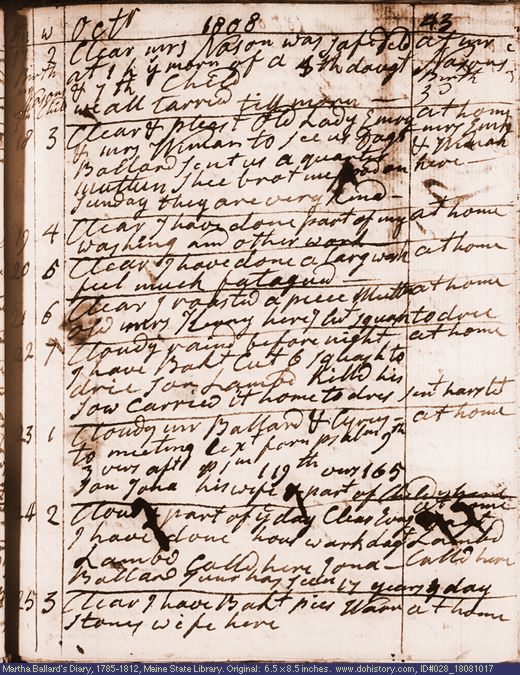 w Octr 1808 43
2 Clear mrs Nason was safe at mr
at 1 h y morn of a 5th daugt Nasons
& 7th Child Birth
we all tarried till morn 3d
18 3 Clear & pleast Old Lady Emry at home
& mrs Himan to see us Dagt mrs Emry
Ballard sent us a quarter & Himan
mutten, shee brot me on here
Sunday they are very kind
19 4 Clear I have done part of my at home
washing and other work
20 5 Clear I have done a larg wash at home
feel much fatagud
21 6 Clear I roasted a piece Mutten at home
and mrs here I Cut squash to drie
22 7 Cloudy raind before night at home
I have Bakt Cut 6 squash to
drie Son Lambd killd his
sow Carried it home to dres sent harslet
23 1 Cloudy mr Ballard & Cyrus at home
to meeting text forn psalm 9th
3 vers aft p lm 119th vers 165
Son Jona his wife & part of Children here
24 2 Cloud part of y day Clear at home
I have done hous work dagt Lambd
Lambd Calld here Jona Calld here
Ballard Junr has seen 17 years y day
25 3 Clear I have Bakt pies Warn at home
Stones wife here
Martha Ballard's Diary, 1785-1812, Maine State Library. Original: 6.5 x 8.5 inches. www.dohistory.com, ID#028_18081017